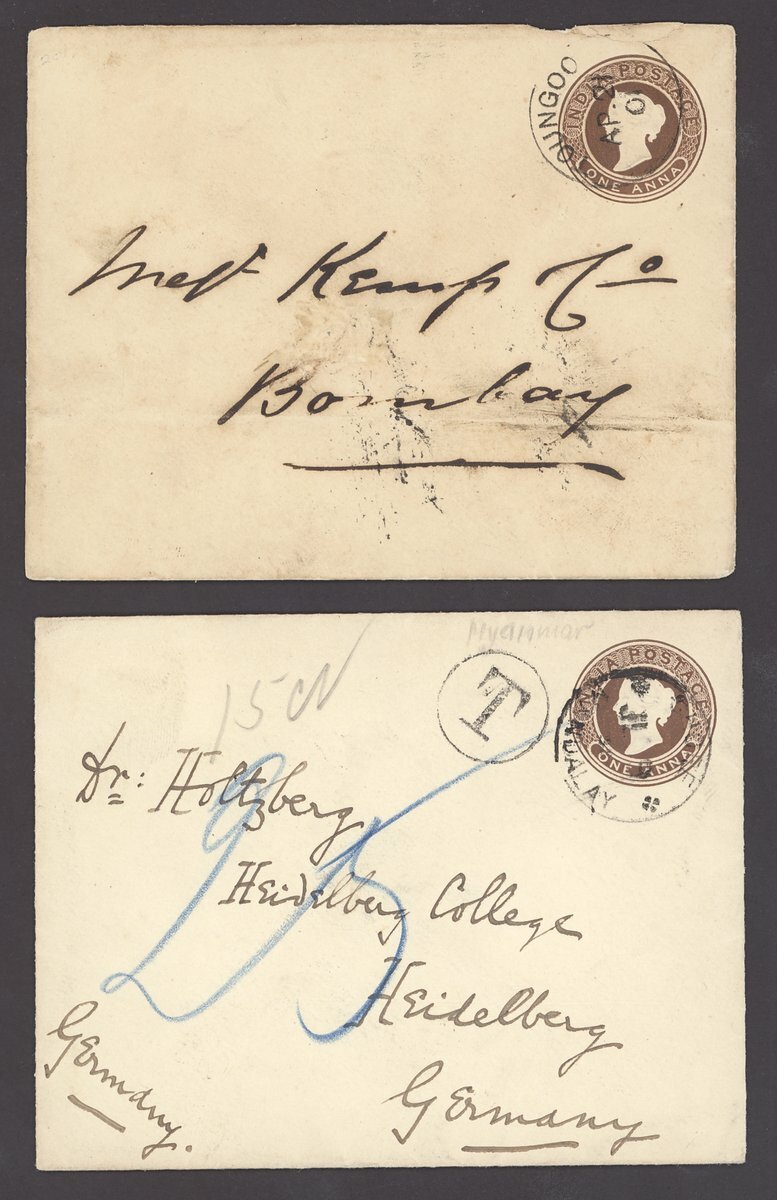 INDIA POSTAGE
ONE ANNA
OUNGOO
AP 28
01
Messrs Kemp & Co
Bombay
Myanmar
T
15 cN
INDIA POSTAGE
ONE ANNA
MANDALAY
25
Dr: Holtzberg
Heidelberg College
Heidelberg
Germany
Germany.